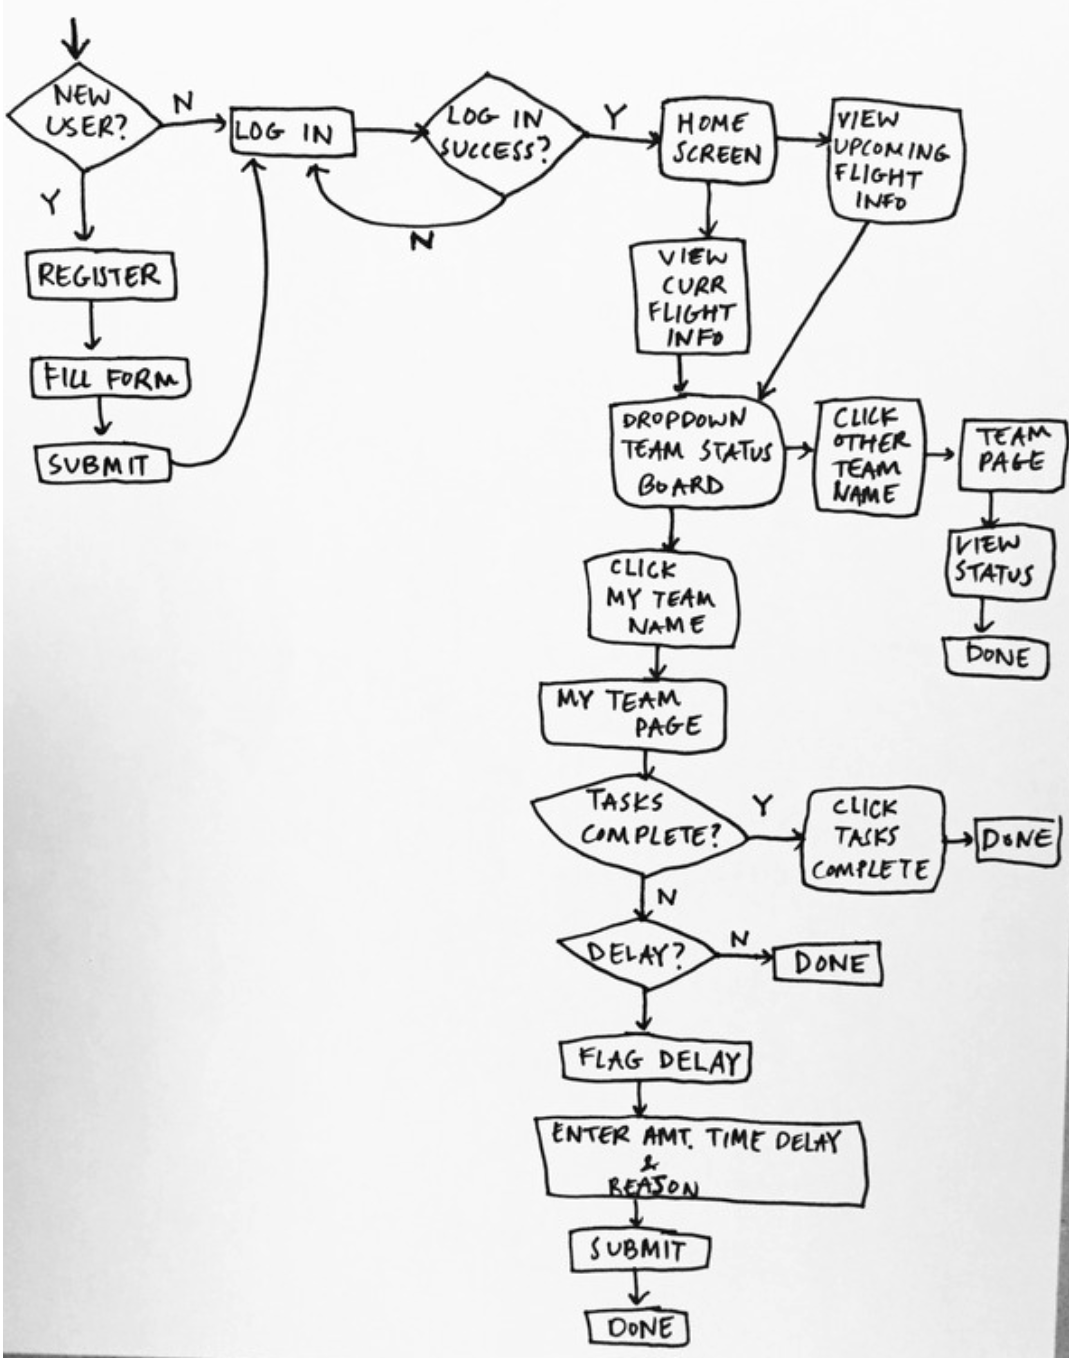 NEW
USER?
N
Y
REGISTER
FILL FORM
SUBMIT
LOG IN
LOG IN
SUCCESS?
N
Y
HOME
SCREEN
VIEW
UPCOMING
FLIGHT
INFO
VIEW
CURR
FLIGHT
INFO
DROPDOWN
TEAM STATUS
BOARD
CLICK
OTHER
TEAM
NAME
TEAM
PAGE
VIEW
STATUS
DONE
CLICK
MY TEAM
NAME
MY TEAM
PAGE
TASKS
COMPLETE?
Y
CLICK
TASKS
COMPLETE
DONE
N
DELAY?
N
DONE
FLAG DELAY
ENTER AMT. TIME DELAY
&
REASON
SUBMIT
DONE